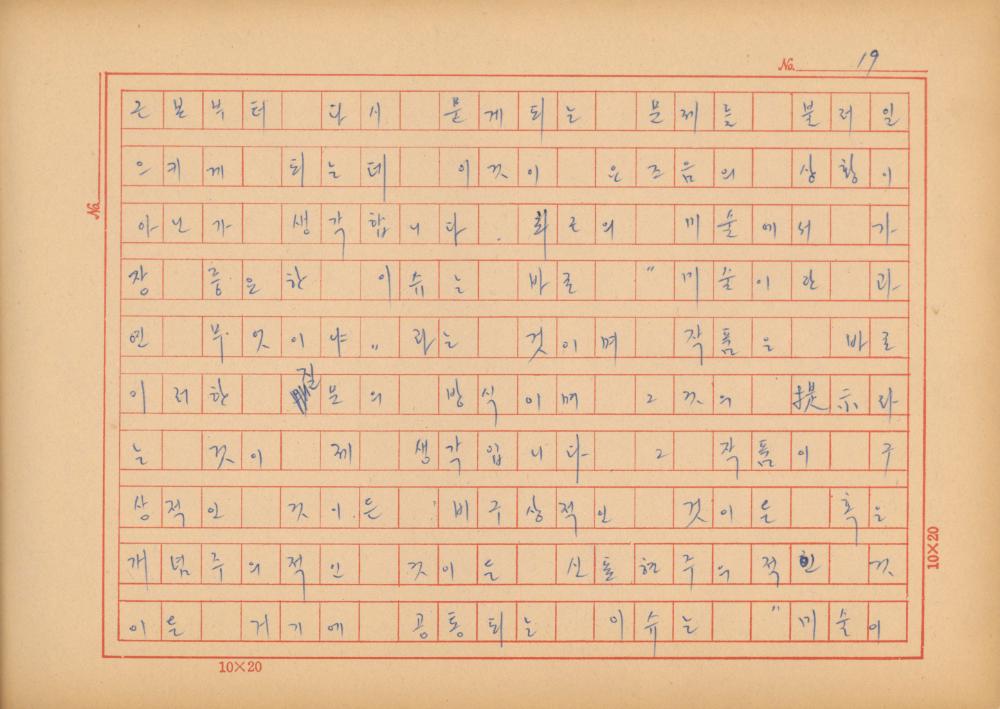 No. 19
근본부터 다시 묻게 되는 문제를 불러일
으키게 되는데 이것이 요즈음의 상황이
아닌가 생각합니다. 최근의 미술에서 가
장 중요한 이슈는 바로 "미술이란 과
연 무엇이냐" 라는 것이며 작품은 바로
이러한 질문의 방식이며 그것의 提示라
는 것이 제 생각입니다 그 작품이 구
상적인 것이든 비구상적인 것이든 혹은
개념주의적인 것이든 신표현주의적인 것
이든 거기에 공통되는 이슈는 "미술이
No.
10×20
10×20